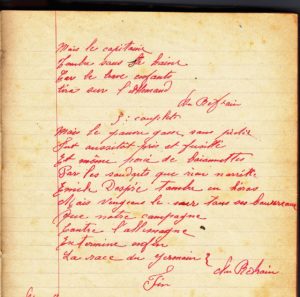 Mais le capitaine
Tomba sans
Car le brave enfant
tira sur l'allemand
Au Refrain
3: couplet
Mais le pauvre gosse sans pitié
fut aussitôt pris et fusillé
Et même percé de baionnettes
Par les soudards que rien n'arrête
Emile Desprès tomba en héros
Mais vengeons le sur tous ses bourreaux
Que notre campagne
Contre l'allemagne
Extermine enfin
La race du germain
Au Refrain
Fin